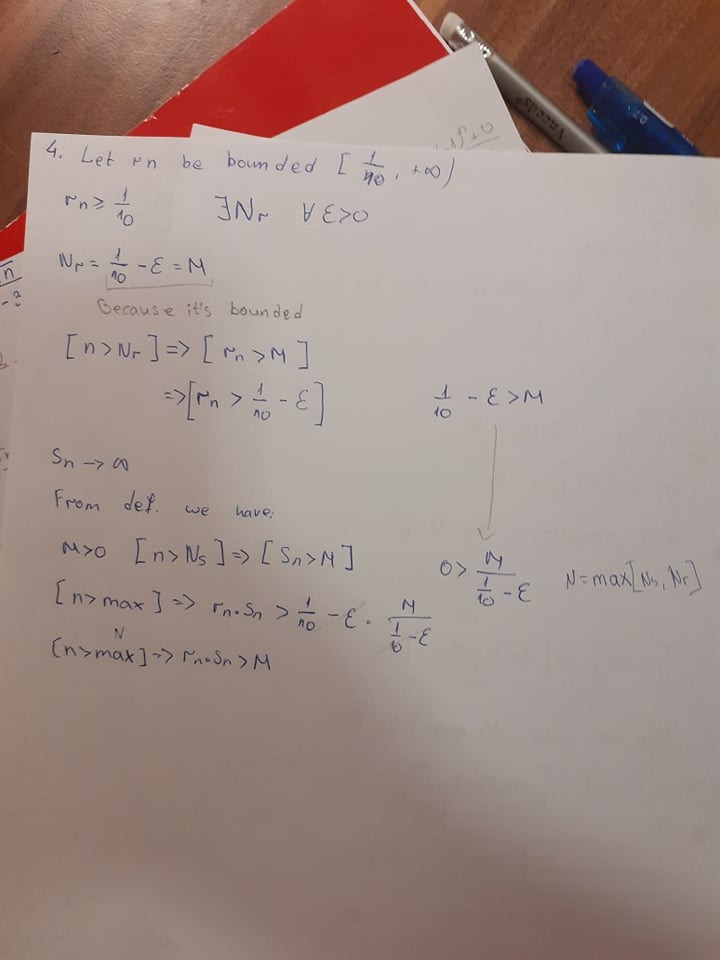 4. Let rn be bounded [ 1/10, +∞)
rn ≥ 1/10   ∃Nr   ∀ε>0
Nr = 1/10 - ε = M
Because it's bounded
[n > Nr] => [rn > M]
=> [rn > 1/10 - ε]   1/10 - ε > M
Sn → ∞
From def. we have:
M>0 [n > Ns] => [Sn > M]   0 > M/(1/10 - ε)   N = max[Ns, Nr]
[n > max] => rn·Sn > 1/10 - ε · M/(1/10 - ε)
N
[n > max] => rn·Sn > M